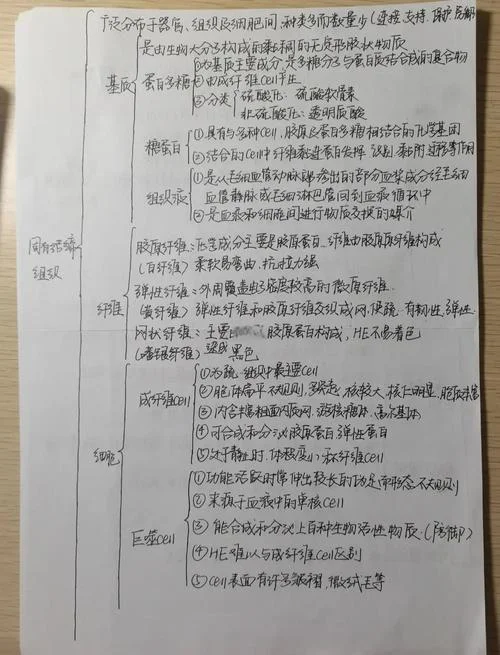 广泛分布于器官、组织及细胞间,种类多而数量少(连接 支持、保护 防御
是由生物大分子构成的黏稠的无定形胶状物质
基质
蛋白多糖
①为基质主要成分,是多糖分子与蛋白质结合成的复合物
②由成纤维cell产生
③分类
硫酸化:硫酸软骨素
非硫酸化:透明质酸
糖蛋白
①具有与多种cell,胶原及蛋白多糖相结合的化学基团
②结合的cell中纤维黏连蛋白发挥识别 黏附 迁移等作用
组织液
①是从毛细血管动脉端渗出的部分血浆成分经毛细
血管静脉或毛细淋巴管回到血液循环中
②是血液和细胞间进行物质交换的媒介
固有结缔
组织
纤维
胶原纤维:化学成分主要是胶原蛋白,纤维由胶原原纤维构成
(白纤维) 柔软易弯曲,抗拉力强
弹性纤维:外周覆盖电子密度较高的微原纤维.
(黄纤维) 弹性纤维和胶原纤维交织成网,使疏 有韧性,弹性.
网状纤维:主要 胶原蛋白构成,HE不易着色
(嗜银纤维) 染成黑色
细胞
成纤维cell
①为疏 组织中最主要cell
②胞体扁平不规则,多突起,核较大,核仁明显,胞质
③内含丰富粗面内质网,游离核糖体,高尔基体
④可合成和分泌胶原蛋白 弹性蛋白
⑤处于静止时,体积变小 称纤维cell
巨噬cell
①功能活跃时常伸出较长的伪足而形态不规则
②来源于血液中的单核cell
③能合成和分泌上百种生物活性物质.(防御)
④HE难以与成纤维cell区别
⑤cell表面有许多皱褶,微绒毛等